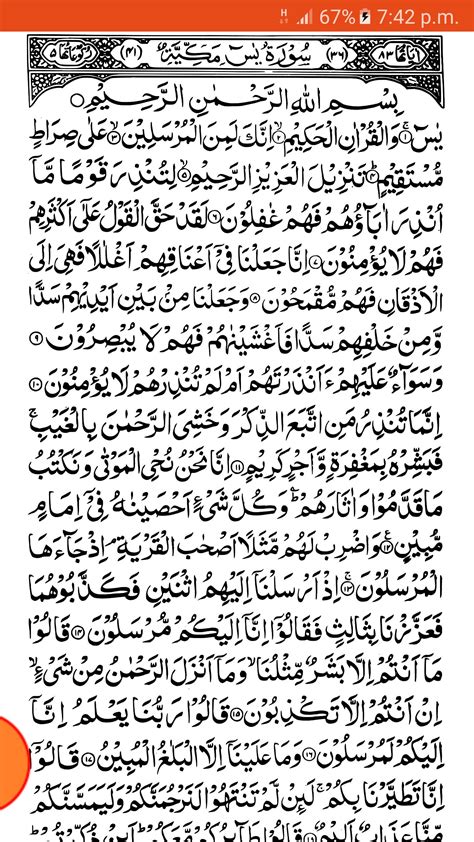 H 67% 7:42 p.m.
اٰيَاتُهَا ٨٣ (٣٦) سُوْرَةُ يٰسٓ مَكِّيَّةٌ (٤١) رُكُوْعَاتُهَا ٥
بِسْمِ اللّٰهِ الرَّحْمٰنِ الرَّحِيْمِ ○
يٰسٓ ۚ﴿١﴾ وَالْقُرْاٰنِ الْحَكِيْمِ ۙ﴿٢﴾ اِنَّكَ لَمِنَ الْمُرْسَلِيْنَ ۙ﴿٣﴾ عَلٰى صِرَاطٍ
مُّسْتَقِيْمٍ ؕ﴿٤﴾ تَنْزِيْلَ الْعَزِيْزِ الرَّحِيْمِ ۙ﴿٥﴾ لِتُنْذِرَ قَوْمًا مَّاۤ
اُنْذِرَ اٰبَآؤُهُمْ فَهُمْ غٰفِلُوْنَ ﴿٦﴾ لَقَدْ حَقَّ الْقَوْلُ عَلٰٓى اَكْثَرِهِمْ
فَهُمْ لَا يُؤْمِنُوْنَ ﴿٧﴾ اِنَّا جَعَلْنَا فِيْۤ اَعْنَاقِهِمْ اَغْلٰلًا فَهِيَ اِلَى
الْاَذْقَانِ فَهُمْ مُّقْمَحُوْنَ ﴿٨﴾ وَجَعَلْنَا مِنْۢ بَيْنِ اَيْدِيْهِمْ سَدًّا
وَّمِنْ خَلْفِهِمْ سَدًّا فَاَغْشَيْنٰهُمْ فَهُمْ لَا يُبْصِرُوْنَ ﴿٩﴾
وَسَوَآءٌ عَلَيْهِمْ ءَاَنْذَرْتَهُمْ اَمْ لَمْ تُنْذِرْهُمْ لَا يُؤْمِنُوْنَ ﴿١٠﴾
اِنَّمَا تُنْذِرُ مَنِ اتَّبَعَ الذِّكْرَ وَخَشِيَ الرَّحْمٰنَ بِالْغَيْبِ ۚ
فَبَشِّرْهُ بِمَغْفِرَةٍ وَّاَجْرٍ كَرِيْمٍ ﴿١١﴾ اِنَّا نَحْنُ نُحْيِ الْمَوْتٰى وَنَكْتُبُ
مَا قَدَّمُوْا وَاٰثَارَهُمْ ؕ وَكُلَّ شَيْءٍ اَحْصَيْنٰهُ فِيْۤ اِمَامٍ
مُّبِيْنٍ ﴿١٢﴾ وَاضْرِبْ لَهُمْ مَّثَلًا اَصْحٰبَ الْقَرْيَةِ ۘ اِذْ جَآءَهَا
الْمُرْسَلُوْنَ ﴿١٣﴾ اِذْ اَرْسَلْنَاۤ اِلَيْهِمُ اثْنَيْنِ فَكَذَّبُوْهُمَا
فَعَزَّزْنَا بِثَالِثٍ فَقَالُوْۤا اِنَّاۤ اِلَيْكُمْ مُّرْسَلُوْنَ ﴿١٤﴾ قَالُوْا
مَاۤ اَنْتُمْ اِلَّا بَشَرٌ مِّثْلُنَا ۙ وَمَاۤ اَنْزَلَ الرَّحْمٰنُ مِنْ شَيْءٍ ۙ
اِنْ اَنْتُمْ اِلَّا تَكْذِبُوْنَ ﴿١٥﴾ قَالُوْا رَبُّنَا يَعْلَمُ اِنَّاۤ
اِلَيْكُمْ لَمُرْسَلُوْنَ ﴿١٦﴾ وَمَا عَلَيْنَاۤ اِلَّا الْبَلٰغُ الْمُبِيْنُ ﴿١٧﴾ قَالُوْۤا
اِنَّا تَطَيَّرْنَا بِكُمْ ۚ لَئِنْ لَّمْ تَنْتَهُوْا لَنَرْجُمَنَّكُمْ وَلَيَمَسَّنَّكُمْ
مِّنَّا عَذَابٌ اَلِيْمٌ ﴿١٨﴾ قَالُوْا طَآئِرُكُمْ مَّعَكُمْ ؕ اَئِنْ ذُكِّرْتُمْ ؕ